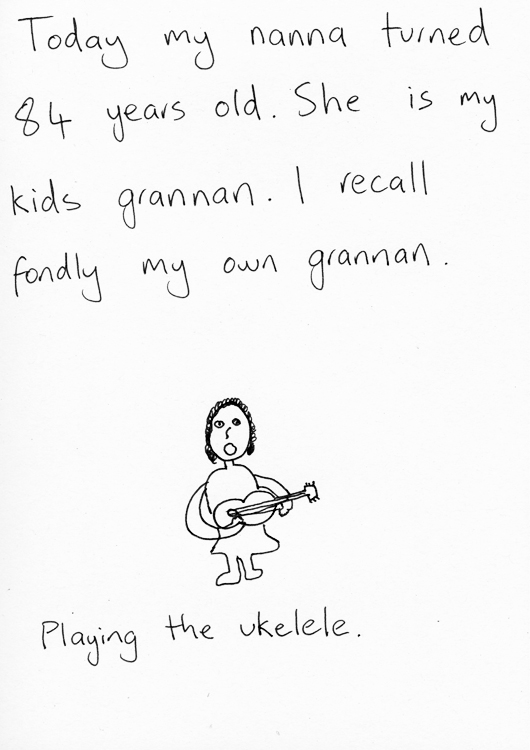 Today my nanna turned
84 years old. She is my
kids grannan. I recall
fondly my own grannan.
Playing the ukelele.